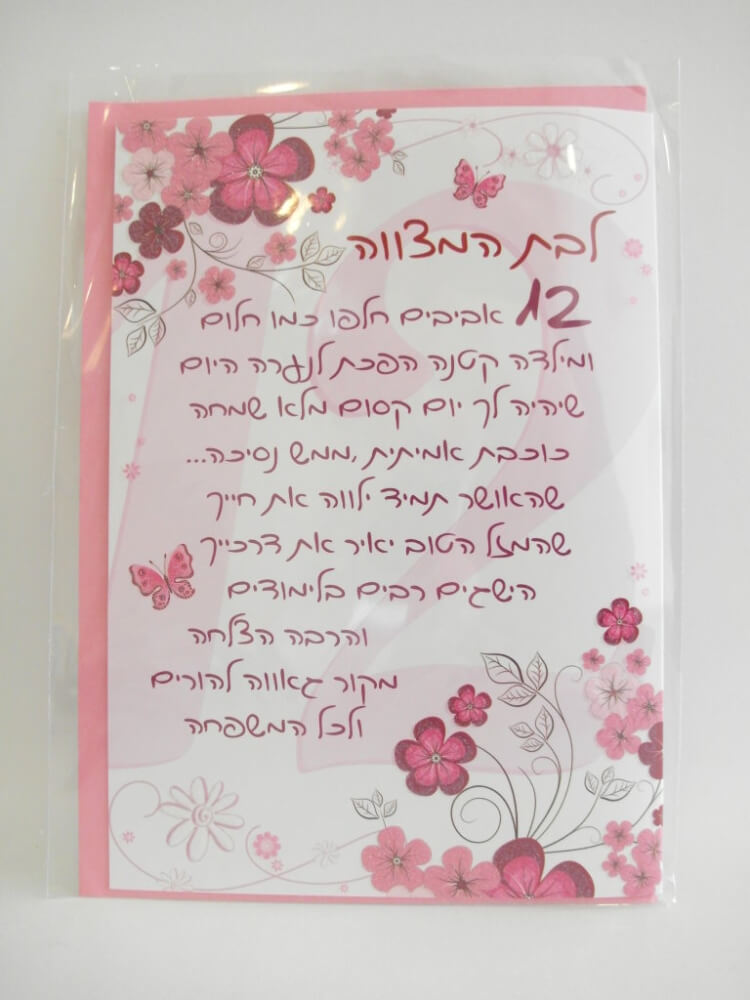 לבת המצווה
12 אביבים חלפו כמו חלום
ומילדה קטנה הפכת לנערה היום
שיהיה לך יום קסום מלא שמחה
כוכבת אמיתית, ממש נסיכה...
שהאושר תמיד ילווה את חייך
שהמזל הטוב יאיר את דרכייך
הישגים רבים בלימודים
והרבה הצלחה
מקור גאווה להורים
ולכל המשפחה